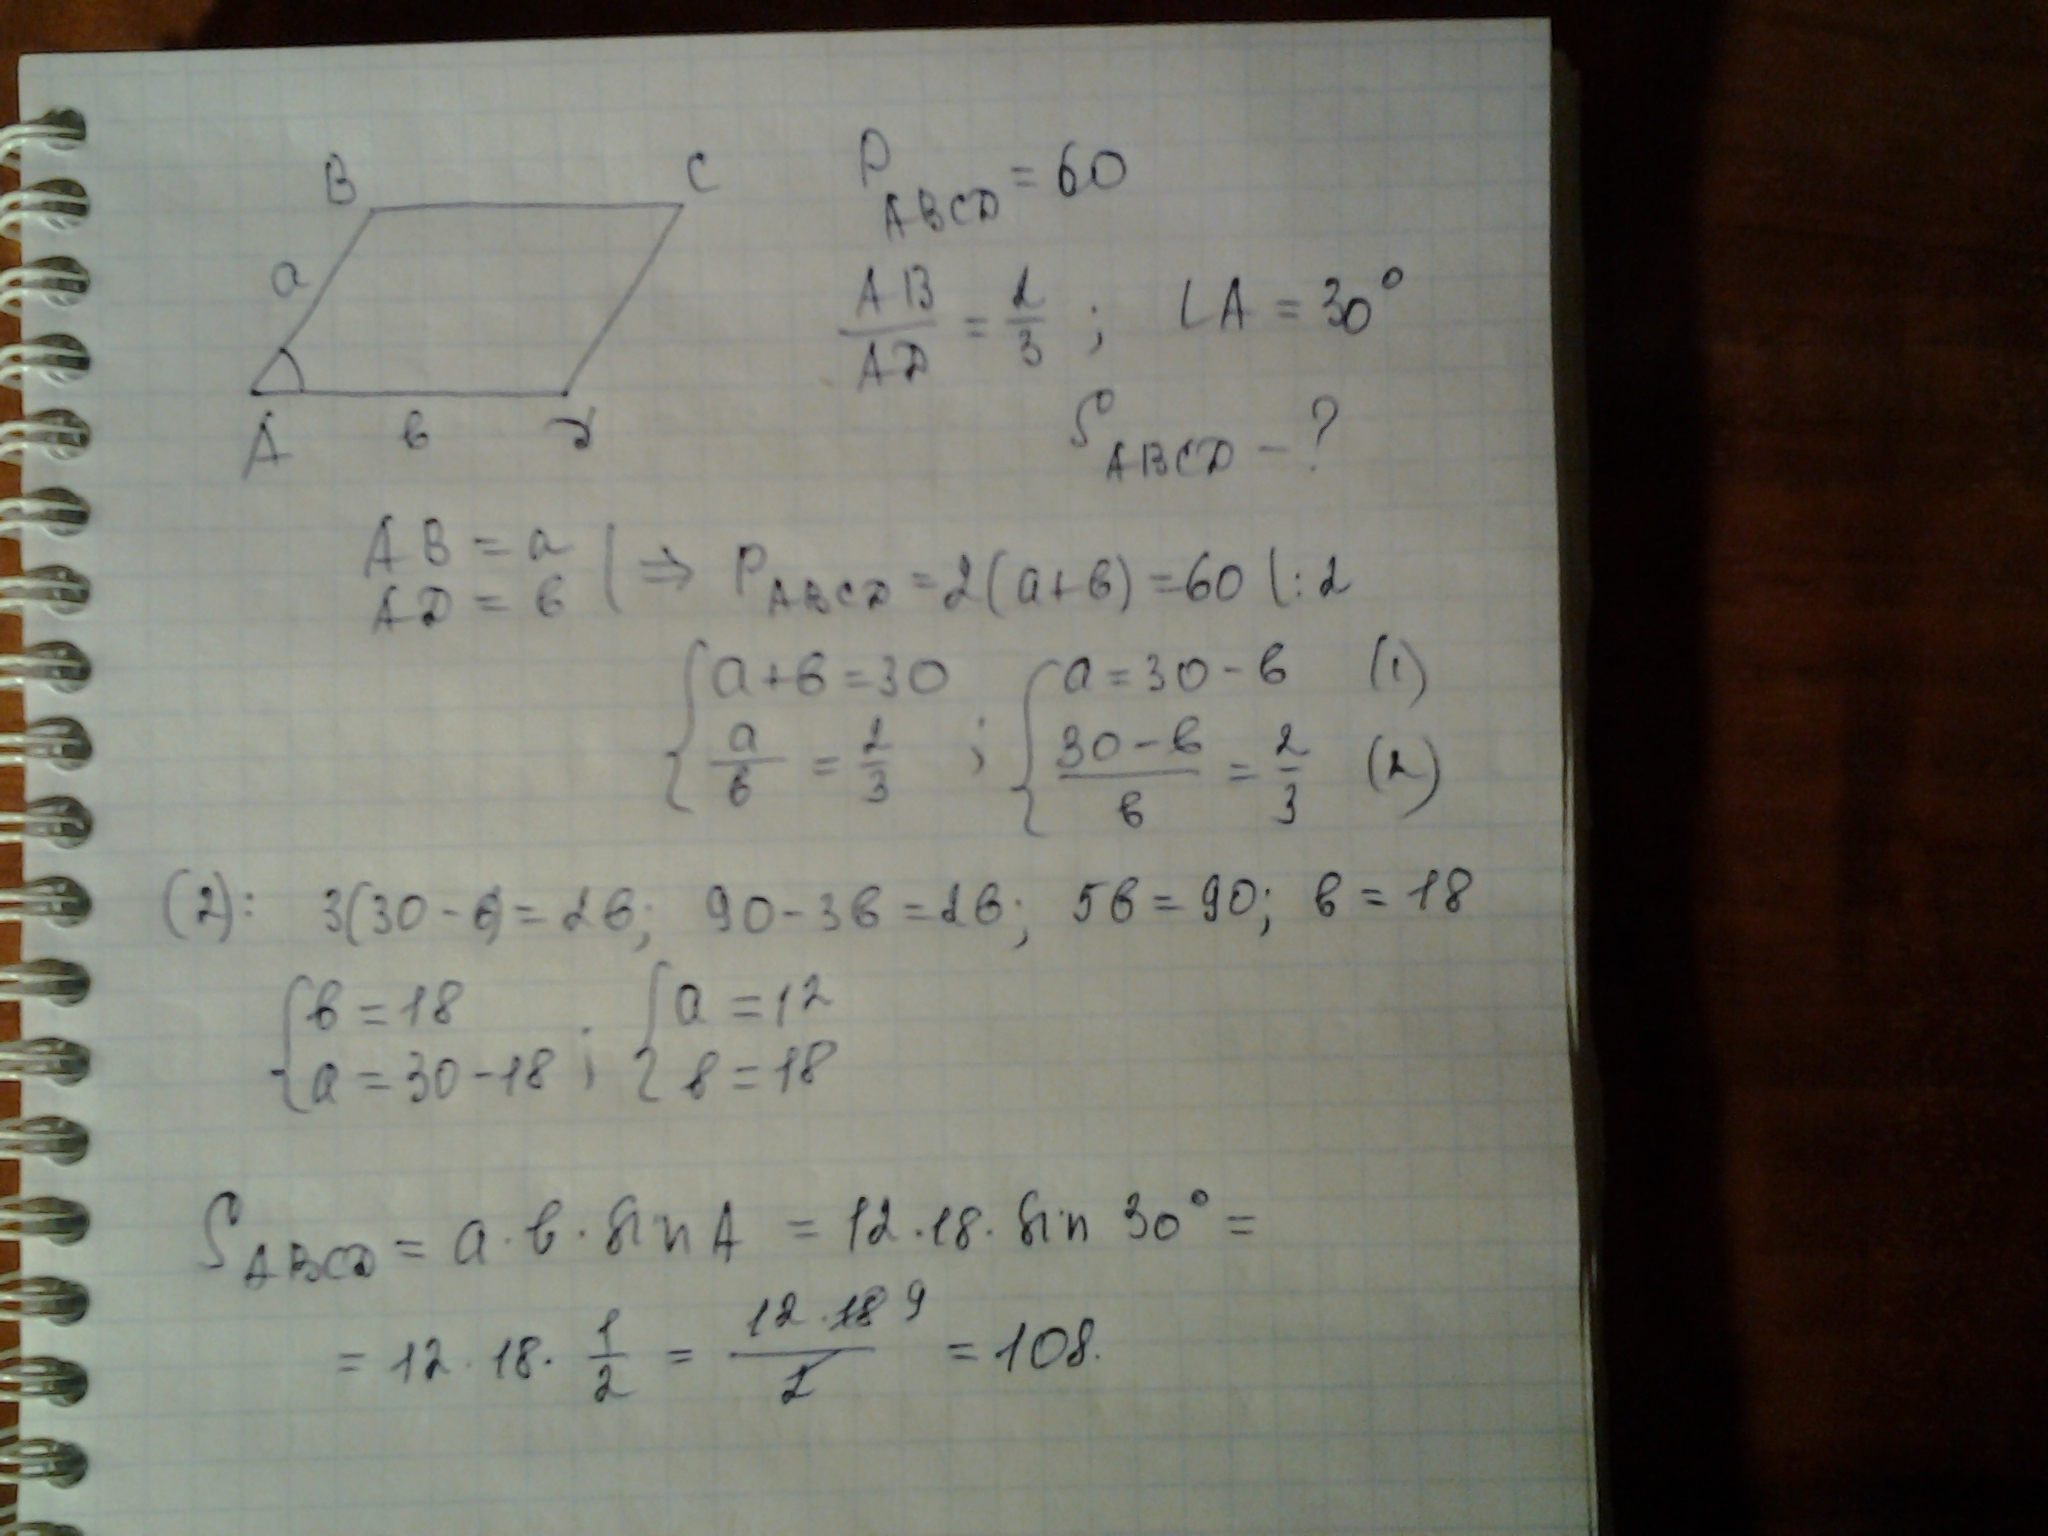 B C
a
A в D
P_ABCD = 60
AB/AD = 2/3 ; ∠A = 30°
S_ABCD - ?
AB = a
AD = в | ⇒ P_ABCD = 2(a+в) = 60 |:2
{ a+в = 30 ; { a = 30 - в (1)
{ a/в = 2/3 ; { (30 - в)/в = 2/3 (2)
(2): 3(30 - в) = 2в; 90 - 3в = 2в; 5в = 90; в = 18
{ в = 18 ; { a = 12
{ a = 30 - 18 ; { в = 18
S_ABCD = a · в · sin A = 12 · 18 · sin 30° =
= 12 · 18 · 1/2 = (12 · 18 9)/2 = 108.